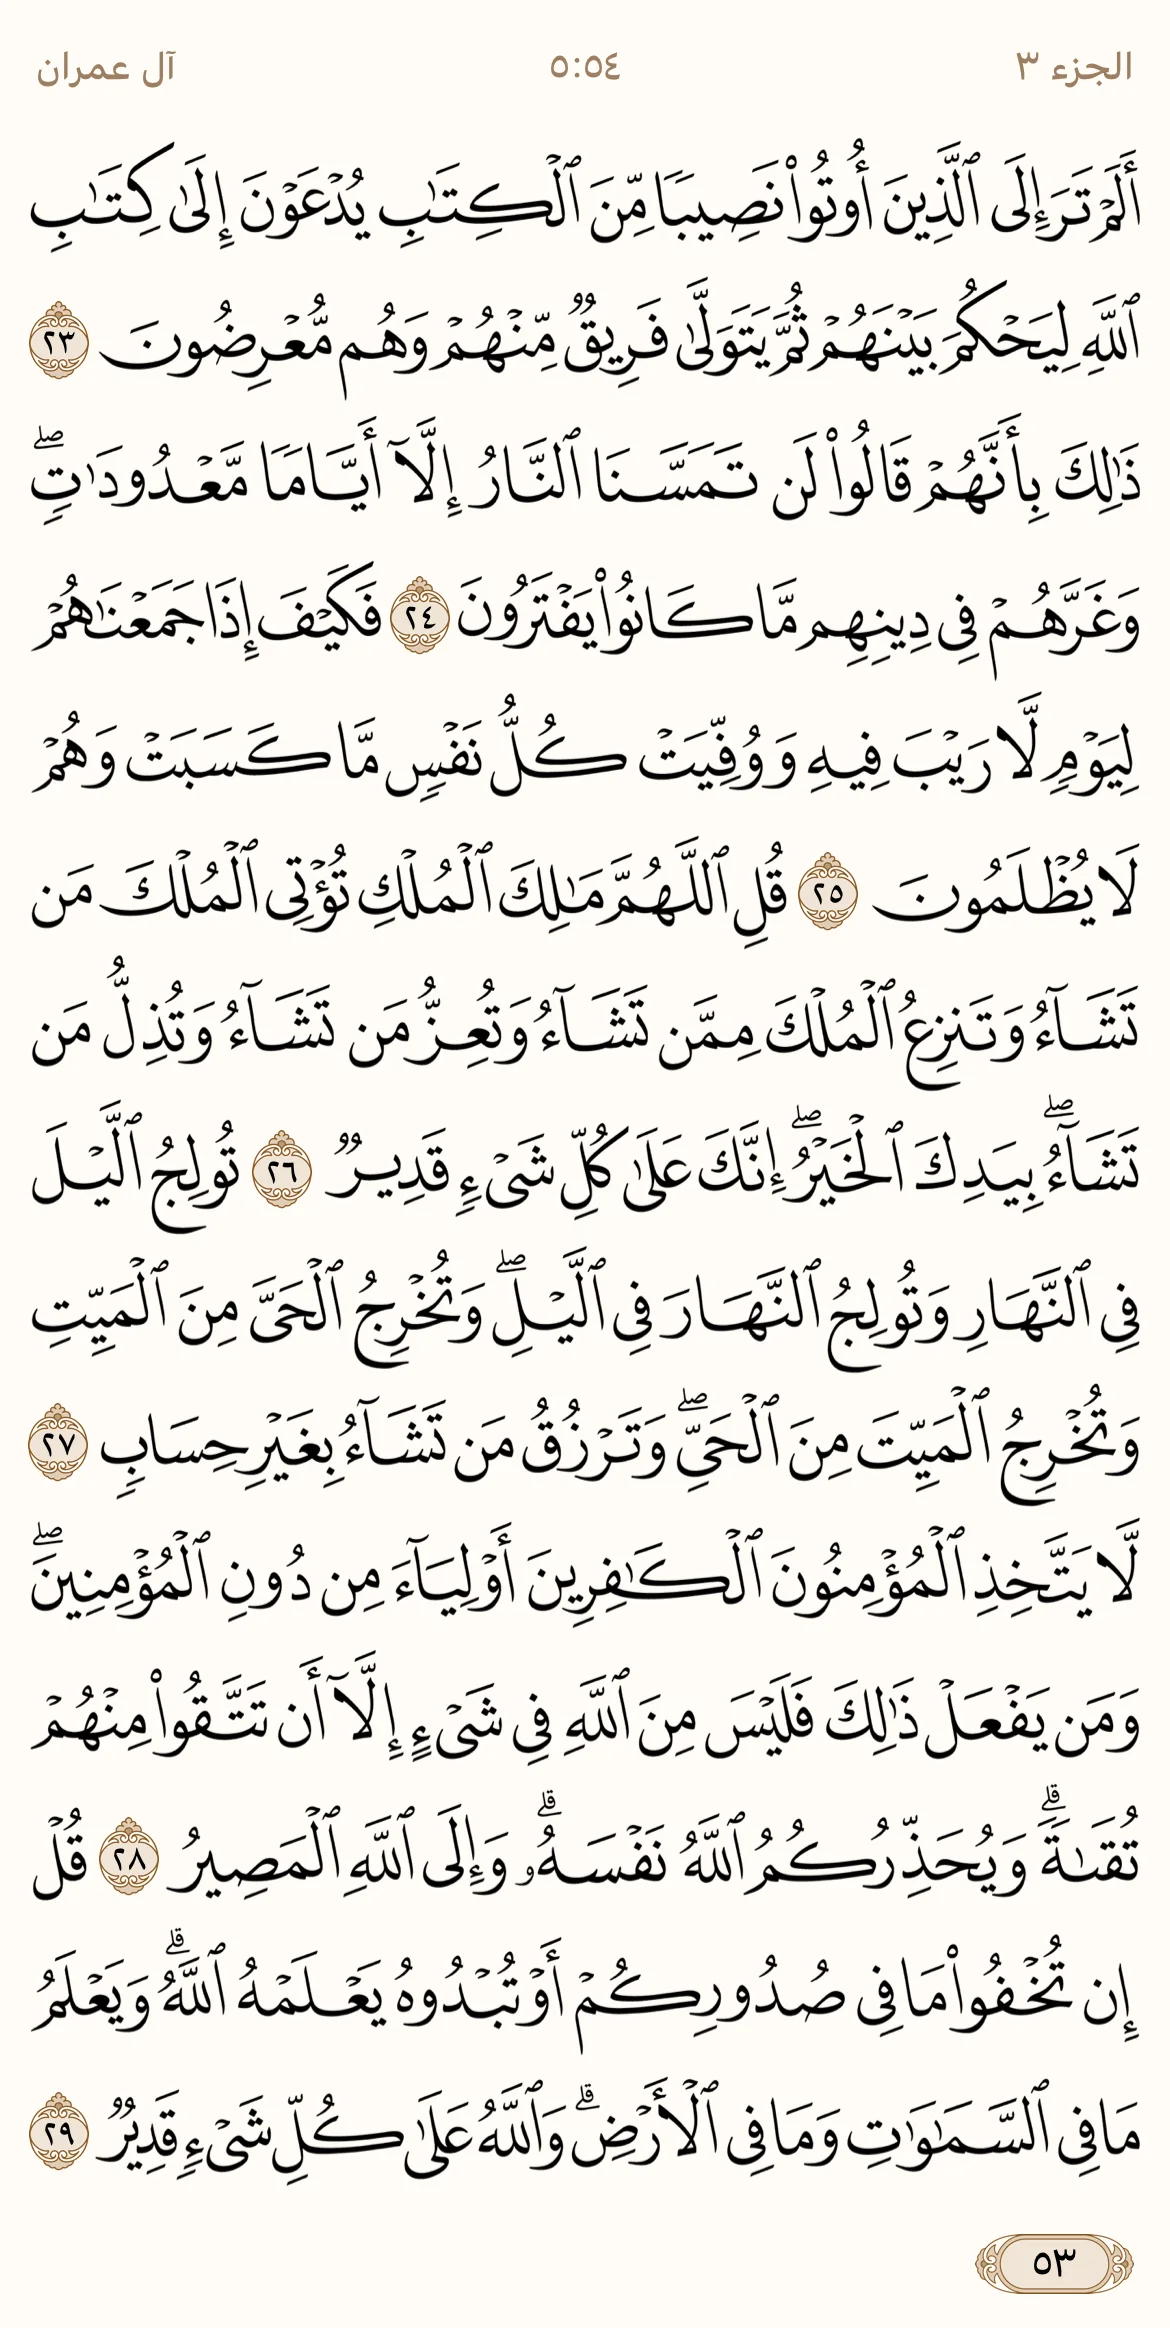 الجزء ٣
٥:٥٤
آل عمران
أَلَمۡ تَرَ إِلَى ٱلَّذِينَ أُوتُواْ نَصِيبٗا مِّنَ ٱلۡكِتَٰبِ يُدۡعَوۡنَ إِلَىٰ كِتَٰبِ
ٱللَّهِ لِيَحۡكُمَ بَيۡنَهُمۡ ثُمَّ يَتَوَلَّىٰ فَرِيقٞ مِّنۡهُمۡ وَهُم مُّعۡرِضُونَ ٢٣
ذَٰلِكَ بِأَنَّهُمۡ قَالُواْ لَن تَمَسَّنَا ٱلنَّارُ إِلَّآ أَيَّامٗا مَّعۡدُودَٰتٖۖ
وَغَرَّهُمۡ فِي دِينِهِم مَّا كَانُواْ يَفۡتَرُونَ ٢٤ فَكَيۡفَ إِذَا جَمَعۡنَٰهُمۡ
لِيَوۡمٖ لَّا رَيۡبَ فِيهِ وَوُفِّيَتۡ كُلُّ نَفۡسٖ مَّا كَسَبَتۡ وَهُمۡ
لَا يُظۡلَمُونَ ٢٥ قُلِ ٱللَّهُمَّ مَٰلِكَ ٱلۡمُلۡكِ تُؤۡتِي ٱلۡمُلۡكَ مَن
تَشَآءُ وَتَنزِعُ ٱلۡمُلۡكَ مِمَّن تَشَآءُ وَتُعِزُّ مَن تَشَآءُ وَتُذِلُّ مَن
تَشَآءُۖ بِيَدِكَ ٱلۡخَيۡرُۖ إِنَّكَ عَلَىٰ كُلِّ شَيۡءٖ قَدِيرٞ ٢٦ تُولِجُ ٱلَّيۡلَ
فِي ٱلنَّهَارِ وَتُولِجُ ٱلنَّهَارَ فِي ٱلَّيۡلِۖ وَتُخۡرِجُ ٱلۡحَيَّ مِنَ ٱلۡمَيِّتِ
وَتُخۡرِجُ ٱلۡمَيِّتَ مِنَ ٱلۡحَيِّۖ وَتَرۡزُقُ مَن تَشَآءُ بِغَيۡرِ حِسَابٖ ٢٧
لَّا يَتَّخِذِ ٱلۡمُؤۡمِنُونَ ٱلۡكَٰفِرِينَ أَوۡلِيَآءَ مِن دُونِ ٱلۡمُؤۡمِنِينَۖ
وَمَن يَفۡعَلۡ ذَٰلِكَ فَلَيۡسَ مِنَ ٱللَّهِ فِي شَيۡءٍ إِلَّآ أَن تَتَّقُواْ مِنۡهُمۡ
تُقَىٰةٗۗ وَيُحَذِّرُكُمُ ٱللَّهُ نَفۡسَهُۥۗ وَإِلَى ٱللَّهِ ٱلۡمَصِيرُ ٢٨ قُلۡ
إِن تُخۡفُواْ مَا فِي صُدُورِكُمۡ أَوۡ تُبۡدُوهُ يَعۡلَمۡهُ ٱللَّهُۗ وَيَعۡلَمُ
مَا فِي ٱلسَّمَٰوَٰتِ وَمَا فِي ٱلۡأَرۡضِۗ وَٱللَّهُ عَلَىٰ كُلِّ شَيۡءٖ قَدِيرٞ ٢٩
٥٣